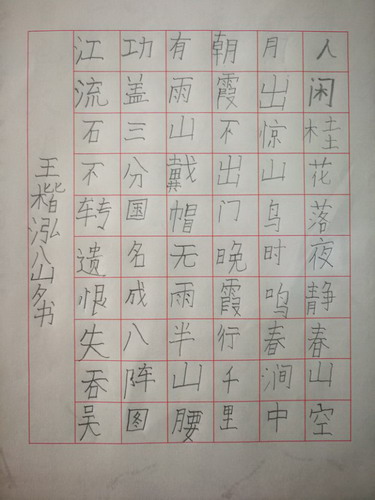 人闲桂花落夜静春山空
月出惊山鸟时鸣春涧中
朝霞不出门晚霞行千里
有雨山戴帽无雨半山腰
功盖三分国名成八阵图
江流石不转遗恨失吞吴
王楷泓八岁书